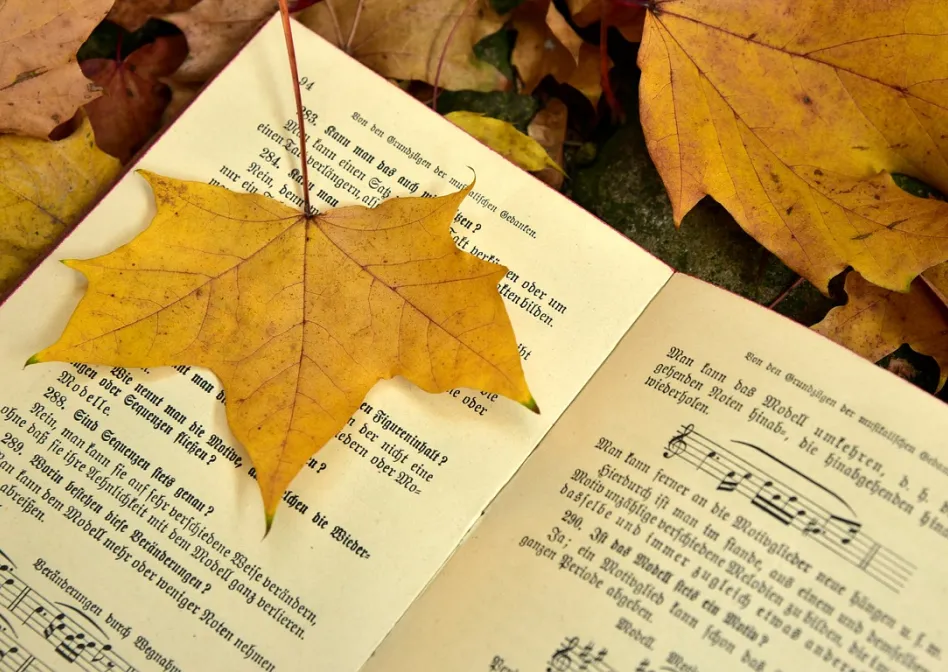 94
Von den Grundzügen der musikalischen Gedanken.
283. Kann man das auch
Man kann einen Satz
einen Takt verlängern, als
284. Kann man
Nein, denn
nur ein
Takt verkürzen oder um
Takten bilden.
Wie nennt man die Motive,
ungen oder Sequenzen fließen?
Modelle.
288. Sind Sequenzen stets genau?
Nein, man kann sie auf sehr verschiedene Weise verändern,
ohne daß sie ihre Aehnlichkeit mit dem Modell ganz verlieren.
289. Worin bestehen diese Veränderungen?
Man kann dem Modell mehr oder weniger Noten nehmen
abreißen.
Veränderungen durch Wegnahm
en Figureninhalt?
n der nicht eine
iedern oder Mo-
lchen die Wieder-
Von den Grundzügen der musikalischen Gedan
Man kann das Modell umkehren, d. h.
gehenden Noten hinab-, die hinabgehenden hin
wiederholen.
Man kann ferner an die Motivglieder neue hängen u. s. w.
Hierdurch ist man im stande, aus einem und demselb
Motiv unzählige verschiedene Melodien zu bilden, die
dasselbe und immer zugleich etwas ande
290. Ist das Modell stets ein Motiv?
Ja; ein Motivglied kann schon das
ganzen Periode abgeben.
Modell.